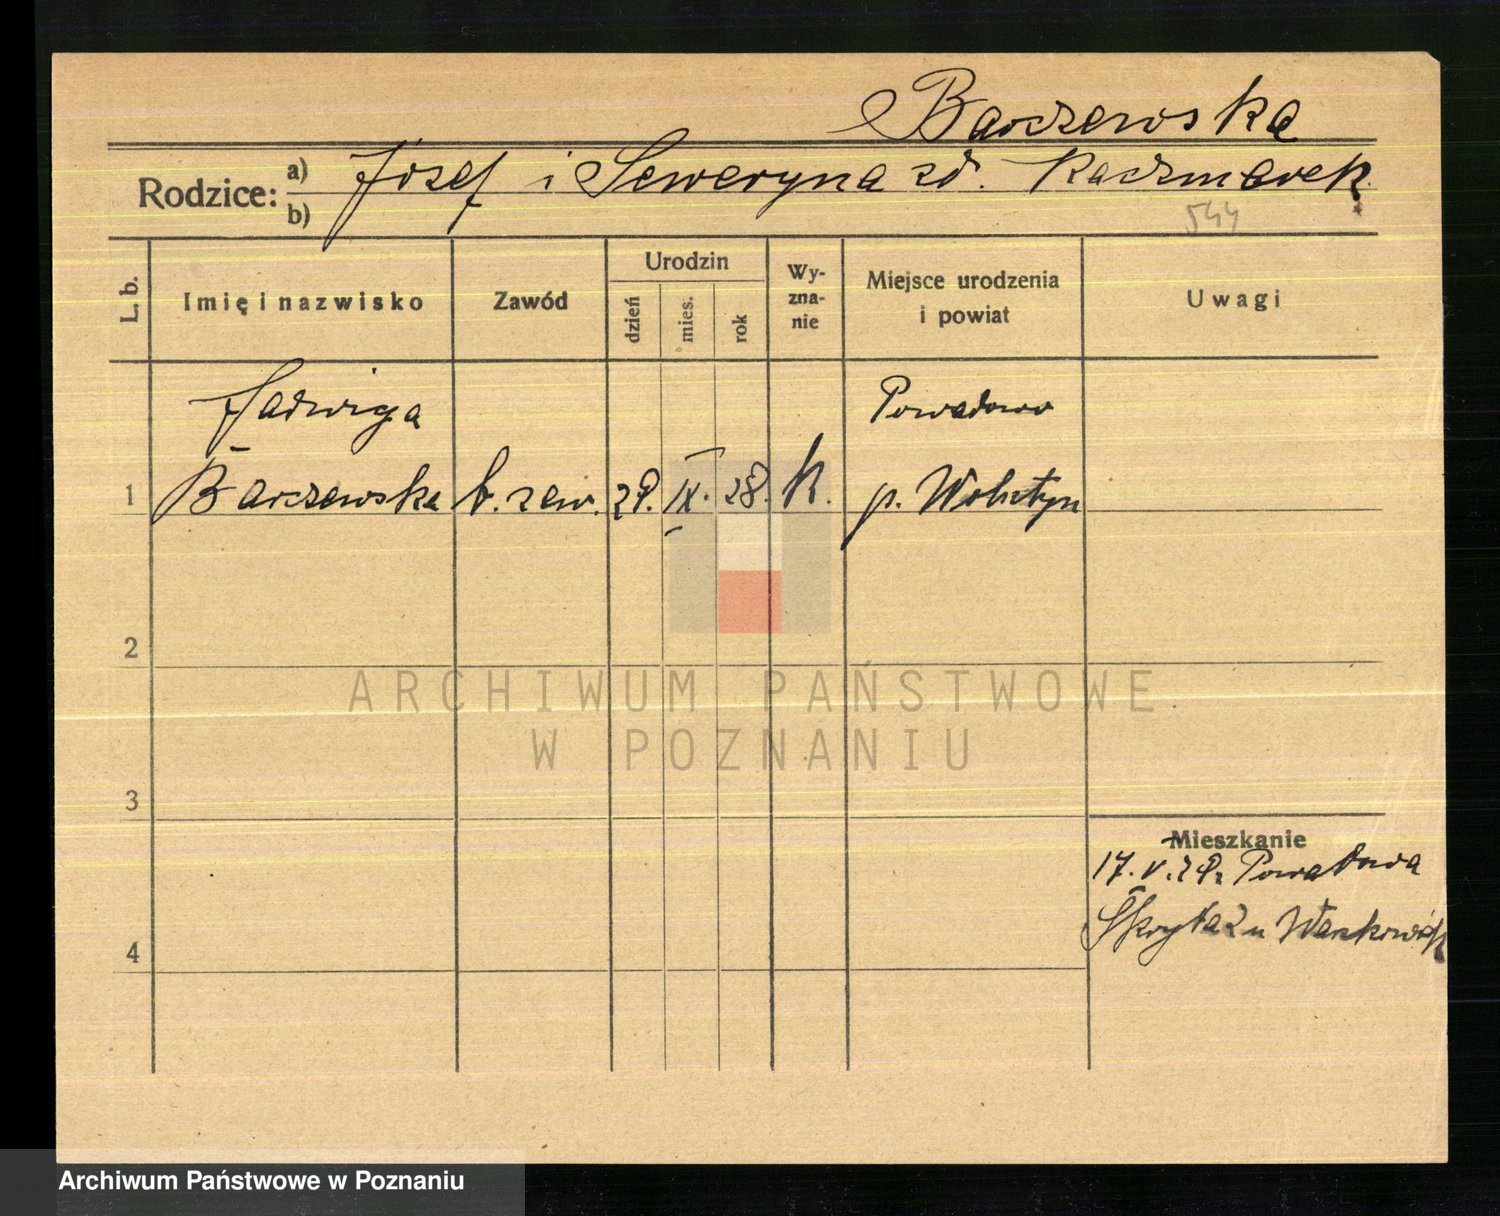 Barczewska
Rodzice: a) Józef i Seweryna zd. Kaczmarek
b)
544
L. b. Imię i nazwisko Zawód Urodzin dzień mies. rok Wy-zna-nie Miejsce urodzenia i powiat Uwagi
Jadwiga Powodowo
1 Barczewska b. zaw. 29. IX. 28. k. p. Wolsztyn
2
ARCHIWUM PAŃSTWOWE
W POZNANIU
3
Mieszkanie
17. V. 29.
u
4
Archiwum Państwowe w Poznaniu